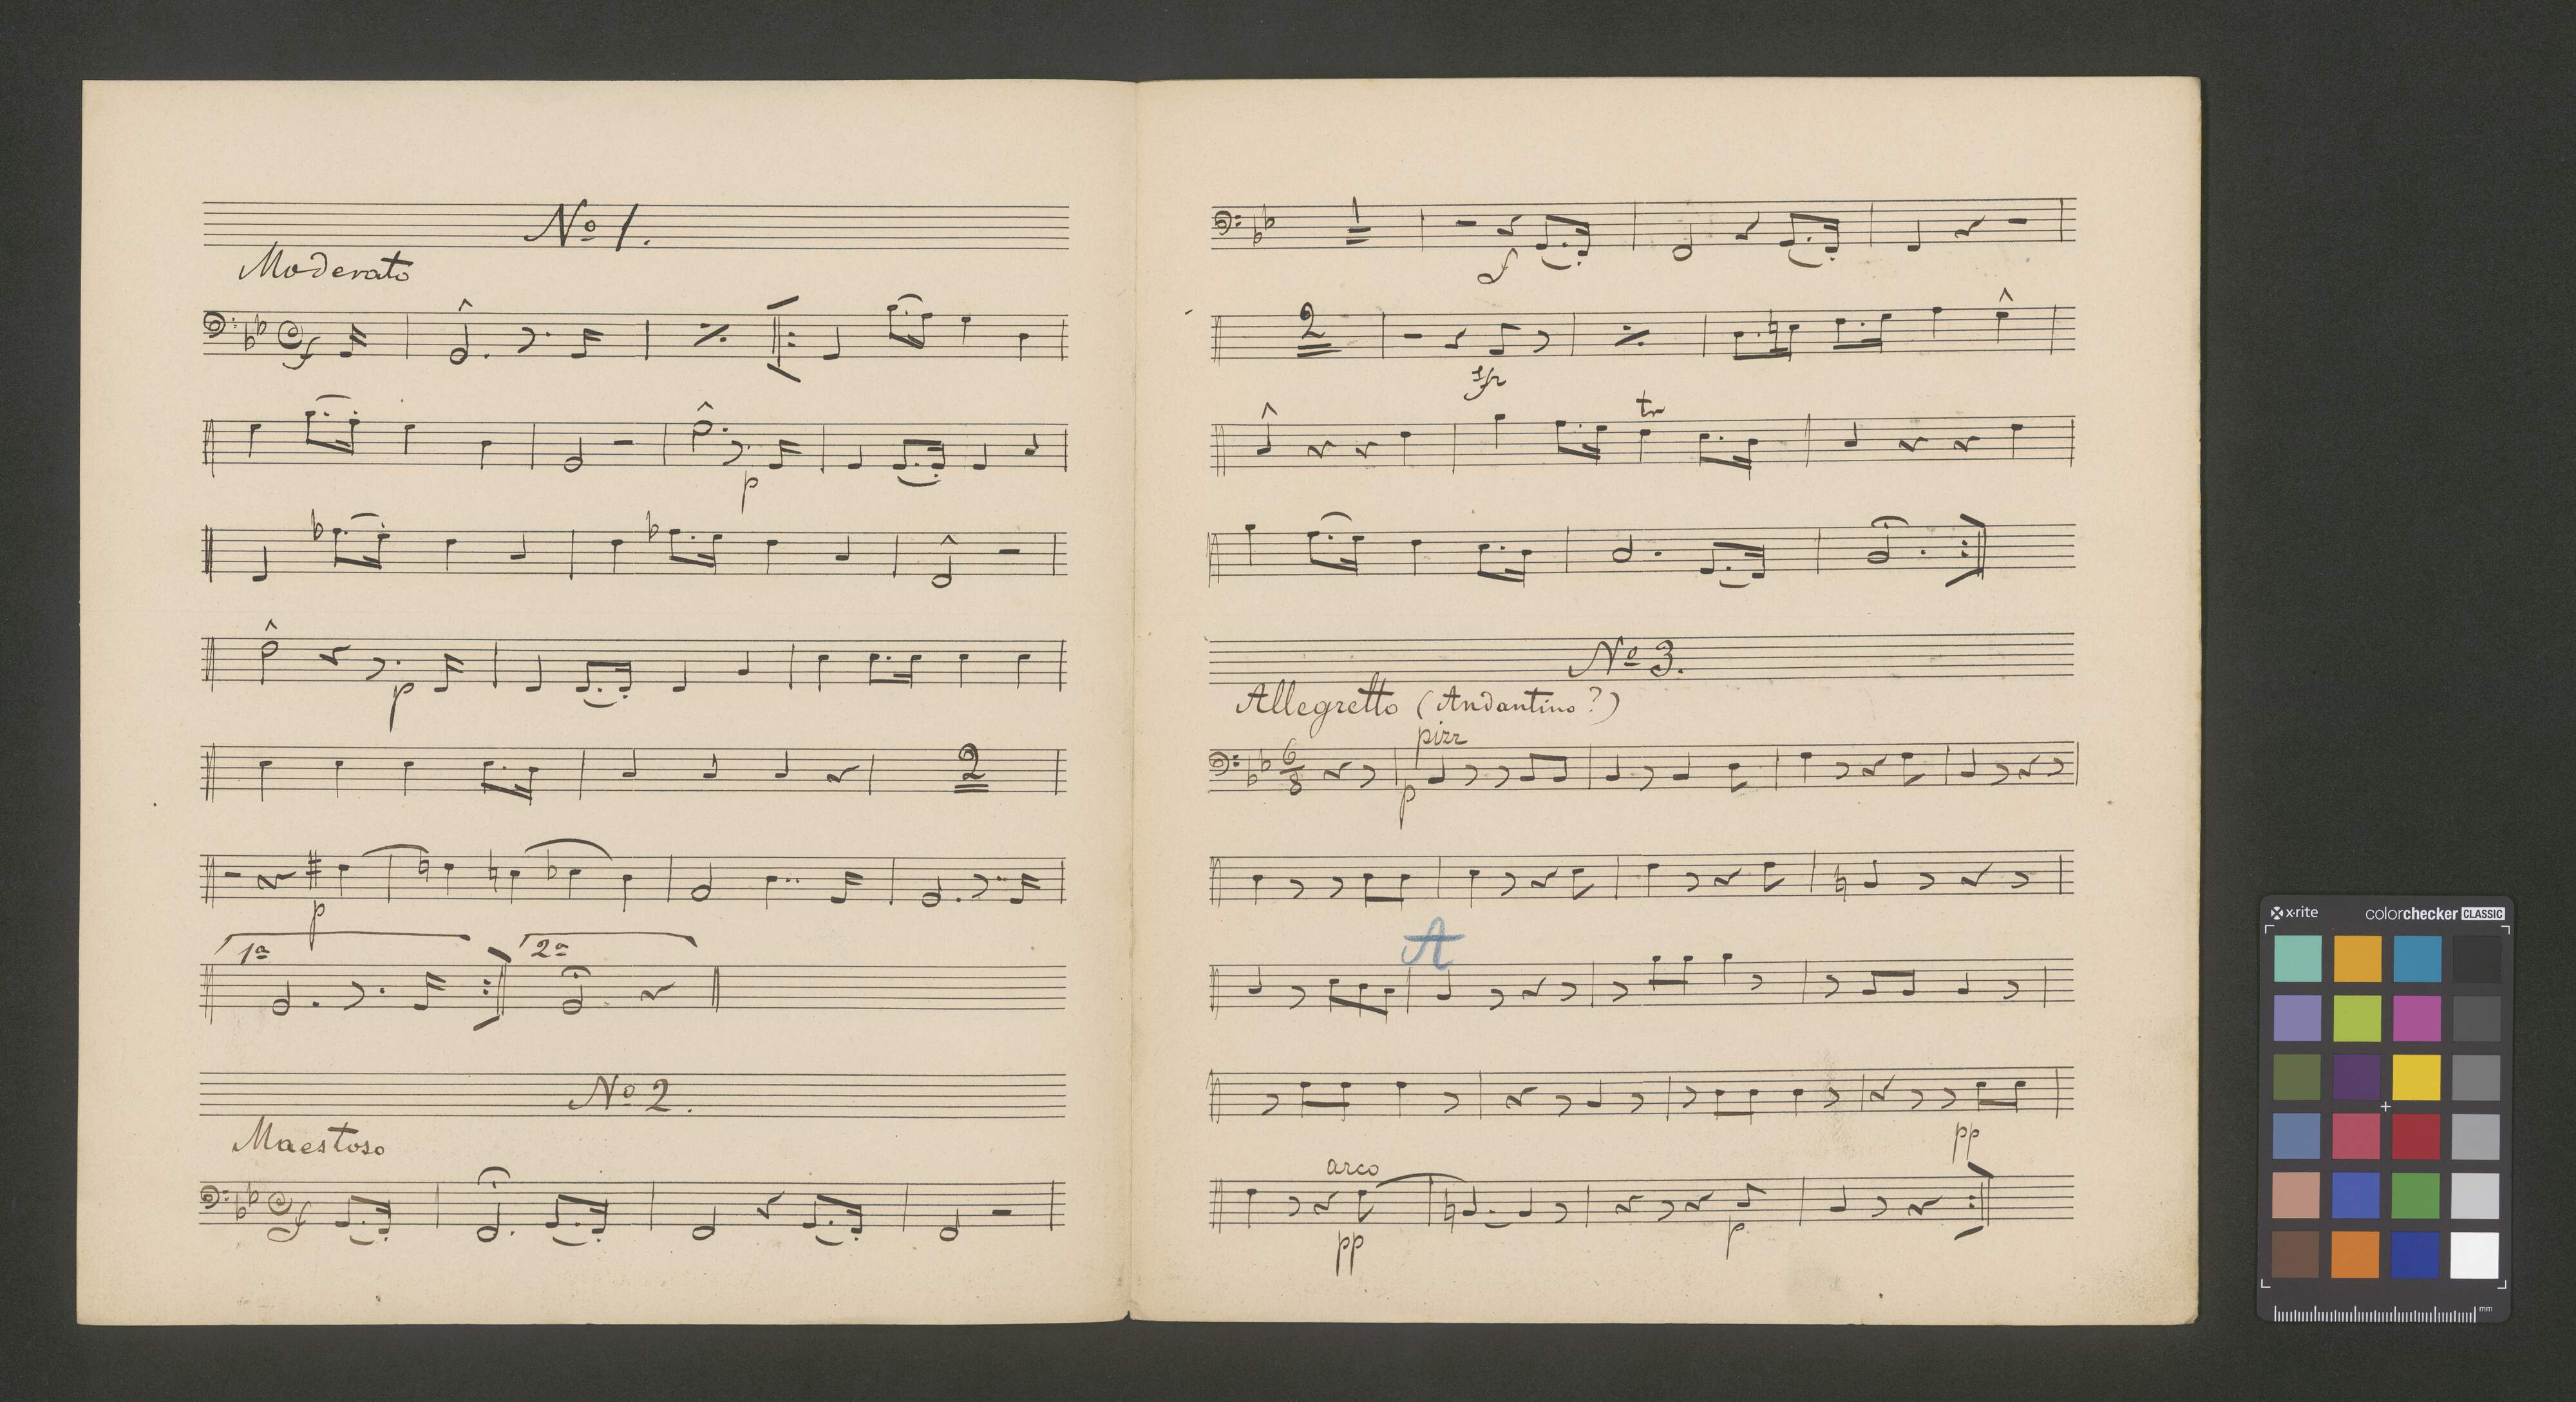 No 1.
Moderato
f
p
p
2
p
1a 2a
No 2.
Maestoso
f
1
f
2
sfz
tr
No 3.
Allegretto (Andantino?)
pizz
6
8
p
A
pp
arco
pp
p
x·rite colorchecker CLASSIC
mm